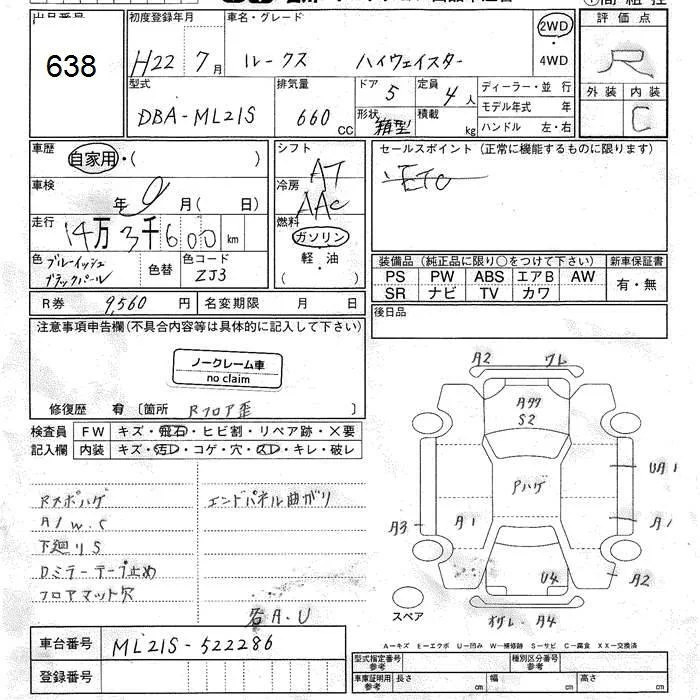 出品番号
638
初度登録年月
H22 7月
車名・グレード
ルークス ハイウェイスター
2WD
・
4WD
評価点
R
外装 内装
C
型式
DBA-ML21S
排気量
660 CC
ドア
5
形状
箱型
定員
4人
積載
kg
ディーラー・並行
モデル年式 年
ハンドル 左・右
車歴
自家用・( )
シフト
AT
セールスポイント(正常に機能するものに限ります)
ETC
車検
年 9 月( 日)
冷房
AAC
走行
14万3千600 km
燃料
ガソリン
軽・油
( )
色
ブルーイッシュ
ブラックパール
色替
色コード
ZJ3
装備品(純正品に限り○をつけて下さい)
新車保証書
PS PW ABS エアB AW
有・無
SR ナビ TV カワ
R券 9,560円
名変期限 月 日
後日品
注意事項申告欄(不具合内容等は具体的に記入して下さい)
ノークレーム車
no claim
修復歴 有 〔箇所 Rフロア歪 〕
検査員 FW キズ・飛石・ヒビ割・リペア跡・×要
記入欄 内装 キズ・汚レ・コゲ・穴・スレ・キレ・破レ
Rメポハゲ
エンドパネル曲がり
A/W.S
下廻りS
Dミラーテープ止め
フロアマット穴
各A.U
A2
ワレ
Aタワ
S2
Pハゲ
UA1
A3
A1
A1
A2
U4
A4
スペア
A-キズ E-エクボ U-凹み W-補修跡 S-サビ C-腐食 XX-交換済
車台番号 ML21S-522286
登録番号
型式指定番号
参考
種別区分番号
参考
車庫証明用
参考
長さ cm
幅 cm
高さ cm